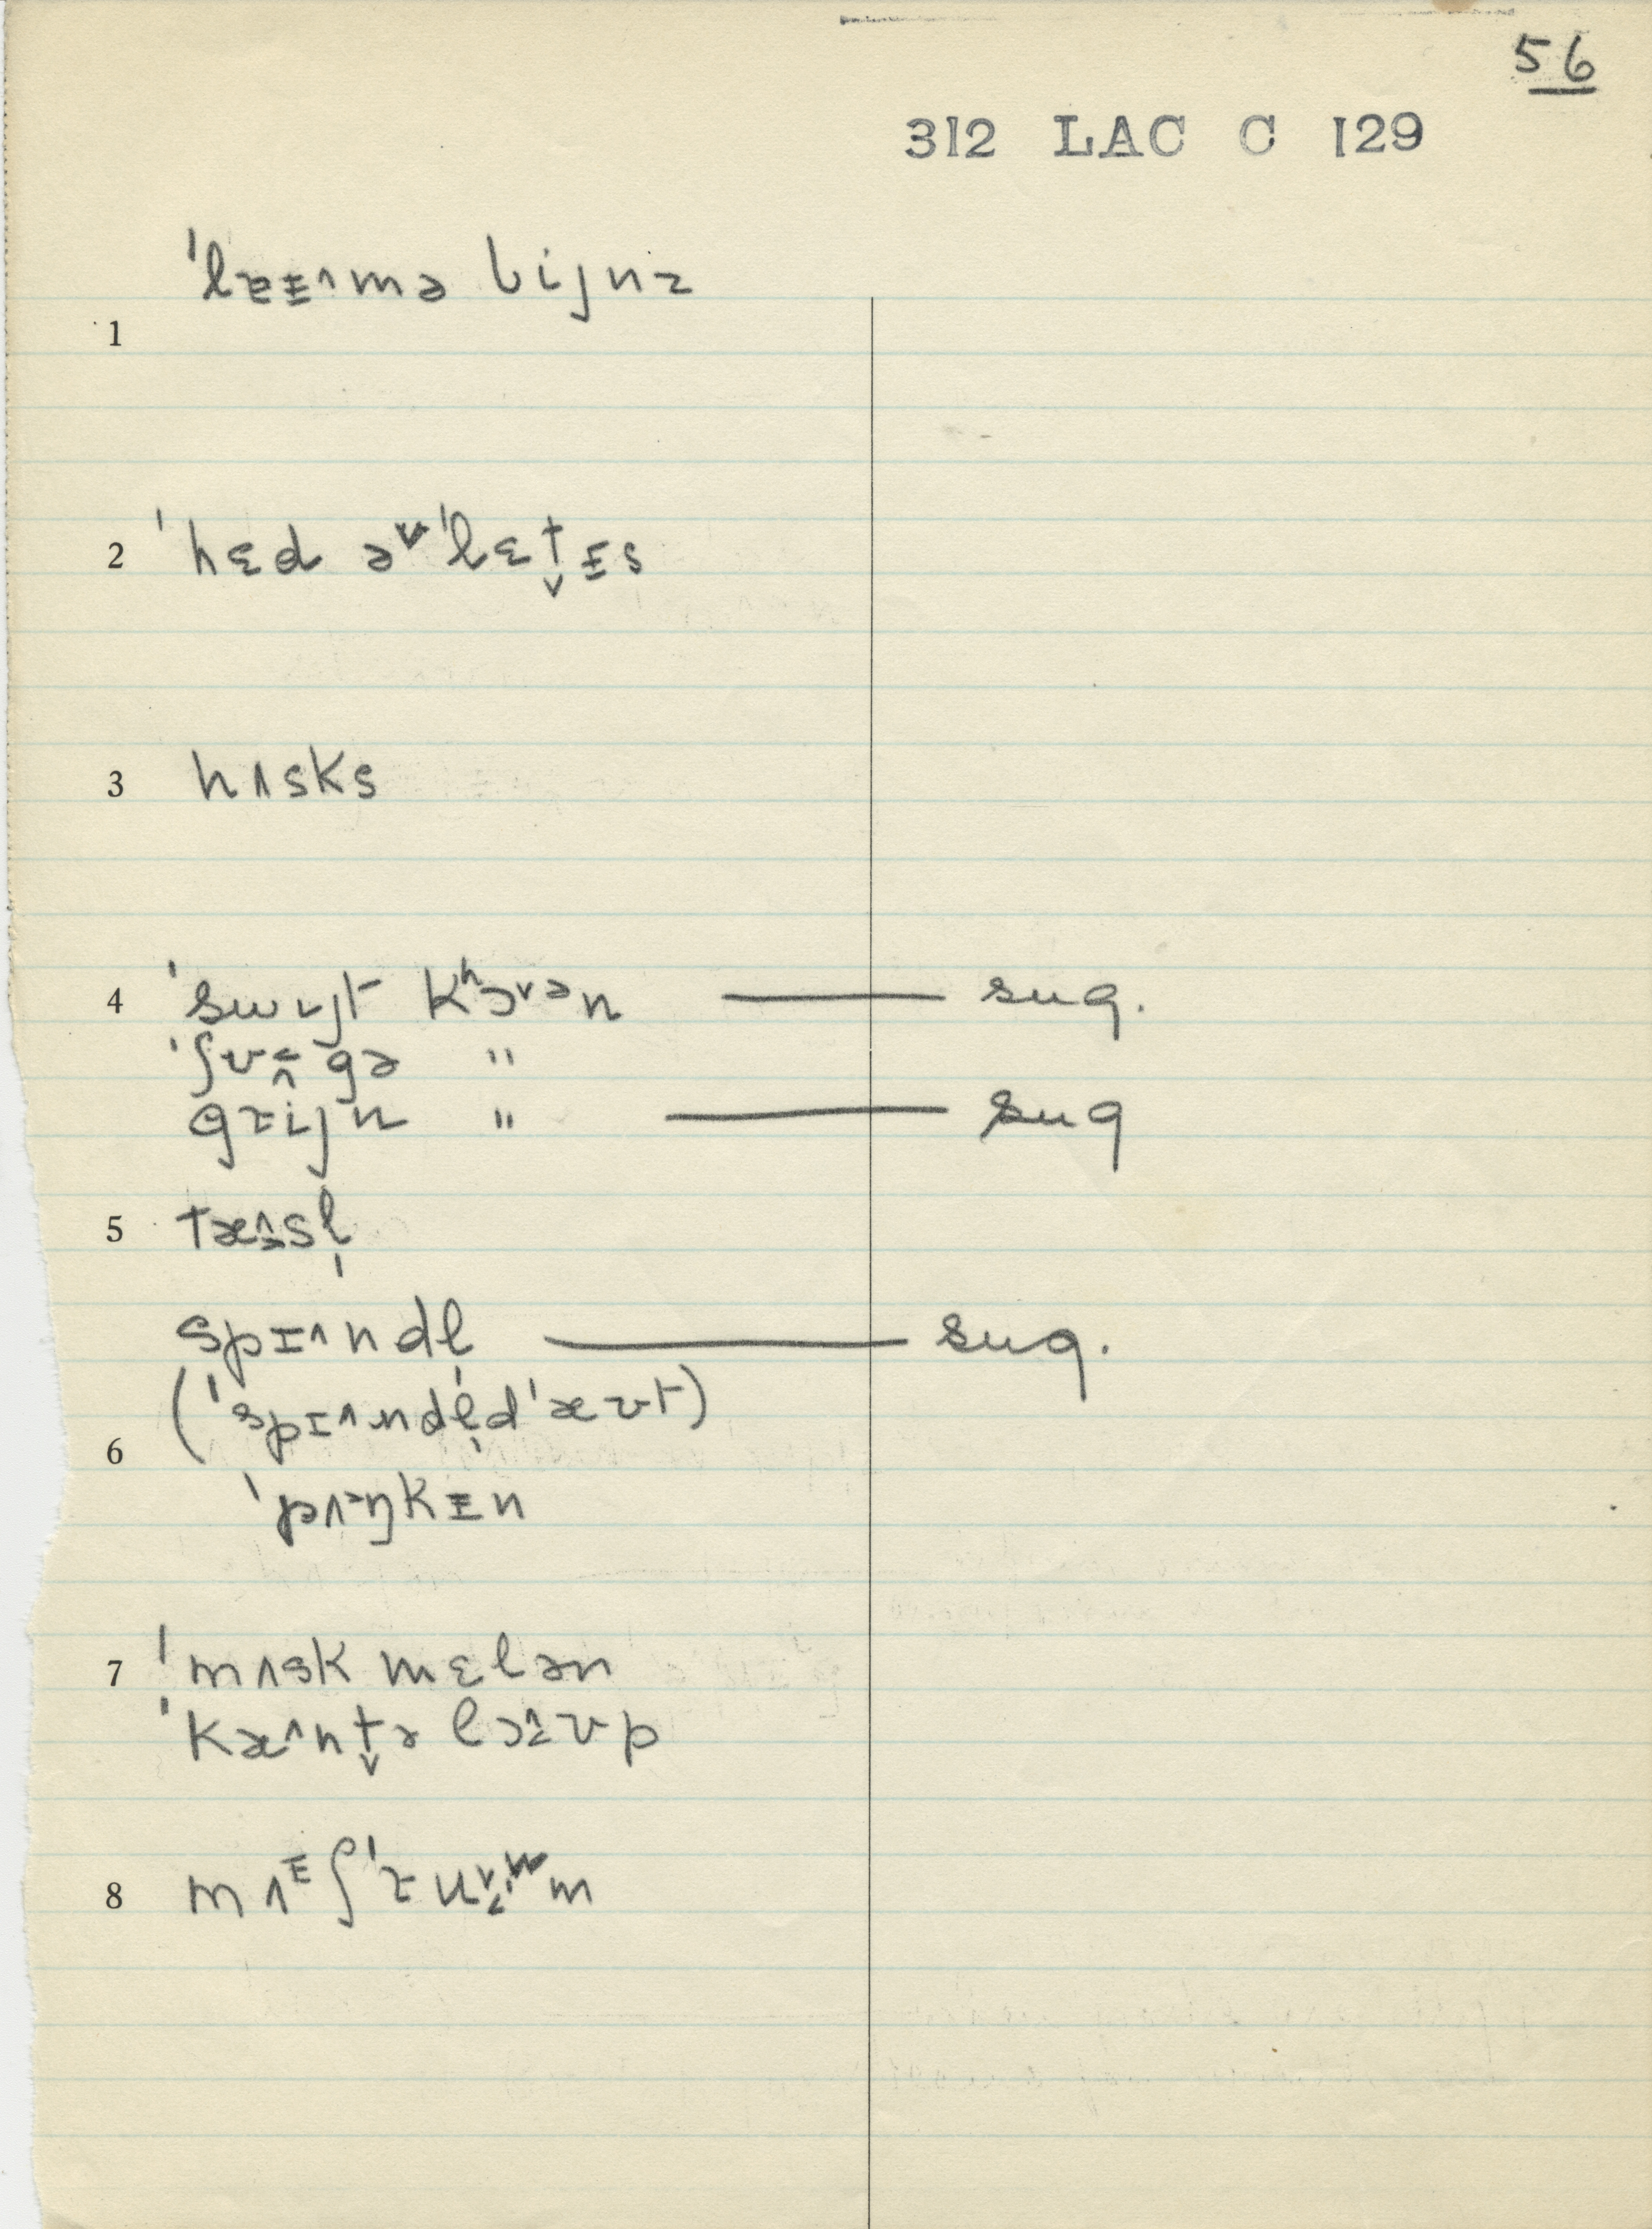 56
312 LAC C 129
ˈlæɪ̵^mə bijnz
1
2 ˈhɛd əᵛˈlɛt̬ɪ̵s
3 hʌsks
4 ˈswijt kʰɔᵛᵊn — sug.
ˈʃʊgə "
grijn " — sug
5 tæsl̩
spɪ^ndl̩ — sug.
(ˈspɪ^ndl̩dˈæʊt)
6
ˈpʌŋkɪ̵n
7 ˈmʌskmɛlən
ˈkæ^nt̬əlɔʊp
8 mʌʃˈruwm